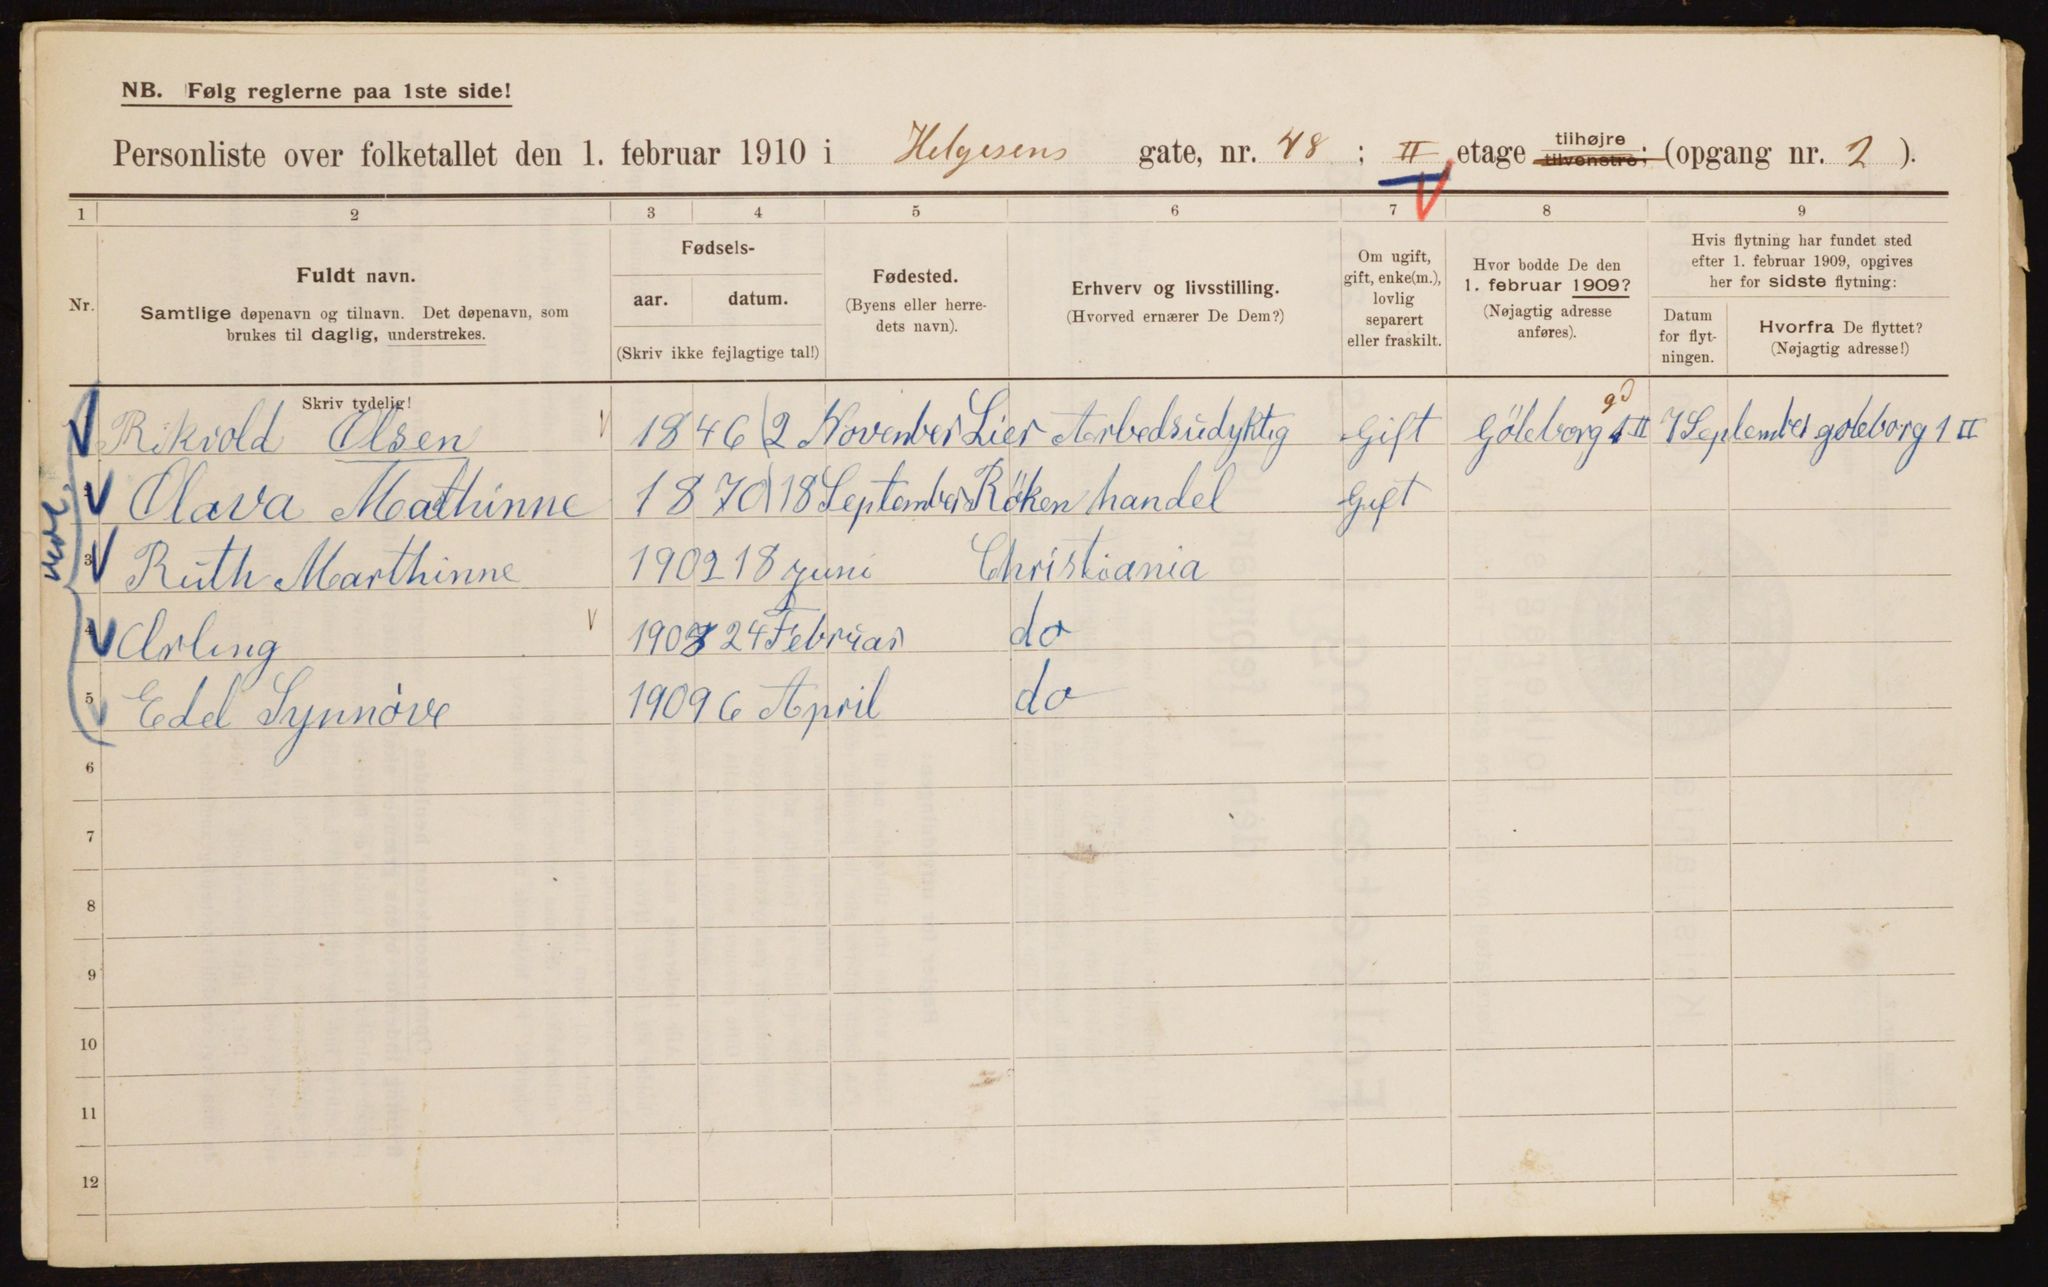 NB. Følg reglerne paa 1ste side!
Personliste over folketallet den 1. februar 1910 i Helgesens gate, nr. 48 ; II etage tilhøjre tilvenstre; (opgang nr. 2 ).
1 2 3 4 5 6 7 8 9
Nr.
Fuldt navn.
Samtlige døpenavn og tilnavn. Det døpenavn, som
brukes til daglig, understrekes.
Skriv tydelig!
Fødsels-
aar. datum.
(Skriv ikke fejlagtige tal!)
Fødested.
(Byens eller herre-
dets navn).
Erhverv og livsstilling.
(Hvorved ernærer De Dem?)
Om ugift,
gift, enke(m.),
lovlig
separert
eller fraskilt.
Hvor bodde De den
1. februar 1909?
(Nøjagtig adresse
anføres).
Hvis flytning har fundet sted
efter 1. februar 1909, opgives
her for sidste flytning:
Datum
for flyt-
ningen.
Hvorfra De flyttet?
(Nøjagtig adresse!)
Rikvold Olsen 1846 2 November Lier Arbedsudyktig Gift Göteborg gd 1 II 7 September goteborg 1 II
Olava Mathinne 1870 18 September Röken handel Gift
3 Ruth Marthinne 1902 18 juni Christiania
4 Arling 24 Februar do
5 Edel Synnöve 1909 6 April do
6
7
8
9
10
11
12